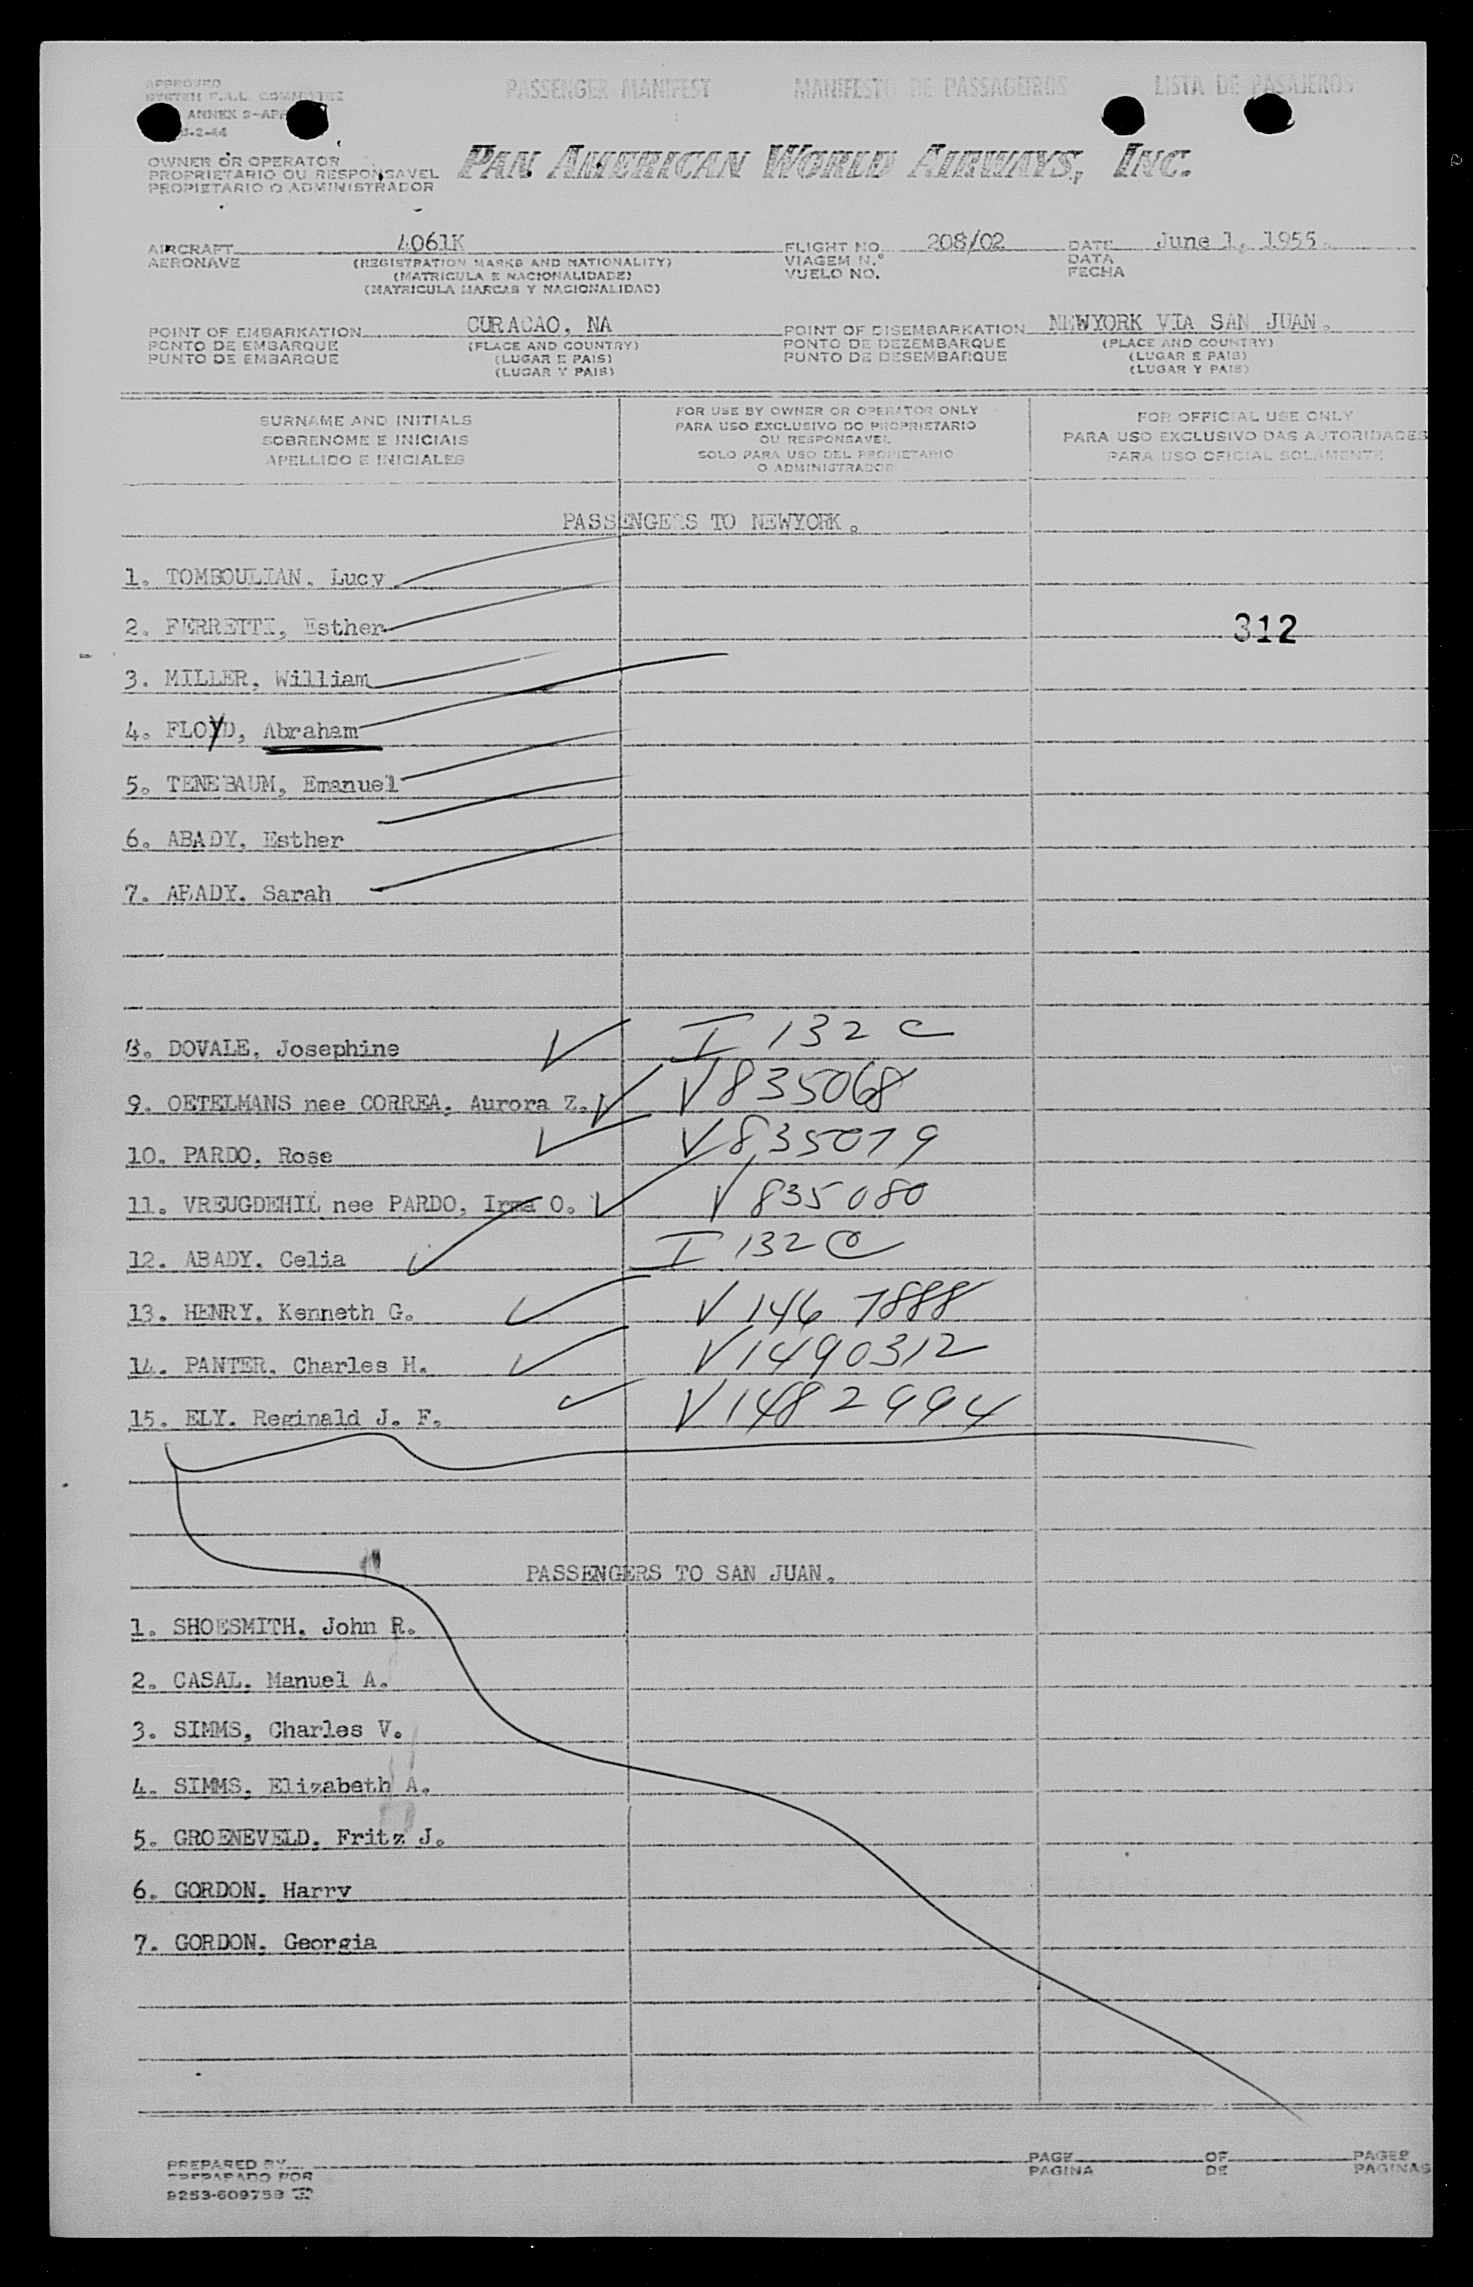 APPROVED PASSENGER MANIFEST MANIFESTO DE PASSAGEIROS LISTA DE PASAJEROS
SYSTEM F.A.L. COMMITTEE
ANNEX 9-
-2-44
OWNER OR OPERATOR
PROPRIETARIO OU RESPONSAVEL
PROPIETARIO O ADMINISTRADOR
PAN AMERICAN WORLD AIRWAYS, INC.
AIRCRAFT 4061K FLIGHT NO. 208/02 DATE June 1, 1955.
AERONAVE (REGISTRATION MARKS AND NATIONALITY) VIAGEM N.º DATA
(MATRICULA E NACIONALIDADE) VUELO NO. FECHA
(MATRICULA MARCAS Y NACIONALIDAD)
POINT OF EMBARKATION CURACAO, NA POINT OF DISEMBARKATION NEWYORK VIA SAN JUAN.
PONTO DE EMBARQUE (PLACE AND COUNTRY) PONTO DE DEZEMBARQUE (PLACE AND COUNTRY)
PUNTO DE EMBARQUE (LUGAR E PAIS) PUNTO DE DESEMBARQUE (LUGAR E PAIS)
(LUGAR Y PAIS) (LUGAR Y PAIS)
SURNAME AND INITIALS
SOBRENOME E INICIAIS
APELLIDO E INICIALES
FOR USE BY OWNER OR OPERATOR ONLY
PARA USO EXCLUSIVO DO PROPRIETARIO
OU RESPONSAVEL
SOLO PARA USO DEL PROPIETARIO
O ADMINISTRADOR
FOR OFFICIAL USE ONLY
PARA USO EXCLUSIVO DAS AUTORIDADES
PARA USO OFICIAL SOLAMENTE
PASSENGERS TO NEWYORK.
1. TOMBOULIAN, Lucy
2. FERRETTI, Esther 312
3. MILLER, William
4. FLOYD, Abraham
5. TENEBAUM, Emanuel
6. ABADY, Esther
7. ABADY, Sarah
8. DOVALE, Josephine I 132 C
9. OETELMANS nee CORREA, Aurora Z. V 835068
10. PARDO, Rose V 835079
11. VREUGDEHIL nee PARDO, Irma O. V 835080
12. ABADY, Celia I 132 C
13. HENRY, Kenneth G. V 146 7888
14. PANTER, Charles H. V 1490312
15. ELY, Reginald J. F. V 1482994
PASSENGERS TO SAN JUAN.
1. SHOESMITH, John R.
2. CASAL, Manuel A.
3. SIMMS, Charles V.
4. SIMMS, Elizabeth A.
5. GROENEVELD, Fritz J.
6. GORDON, Harry
7. GORDON, Georgia
PREPARED BY PAGE OF PAGES
PREPARADO POR PAGINA DE PAGINAS
9253-609758